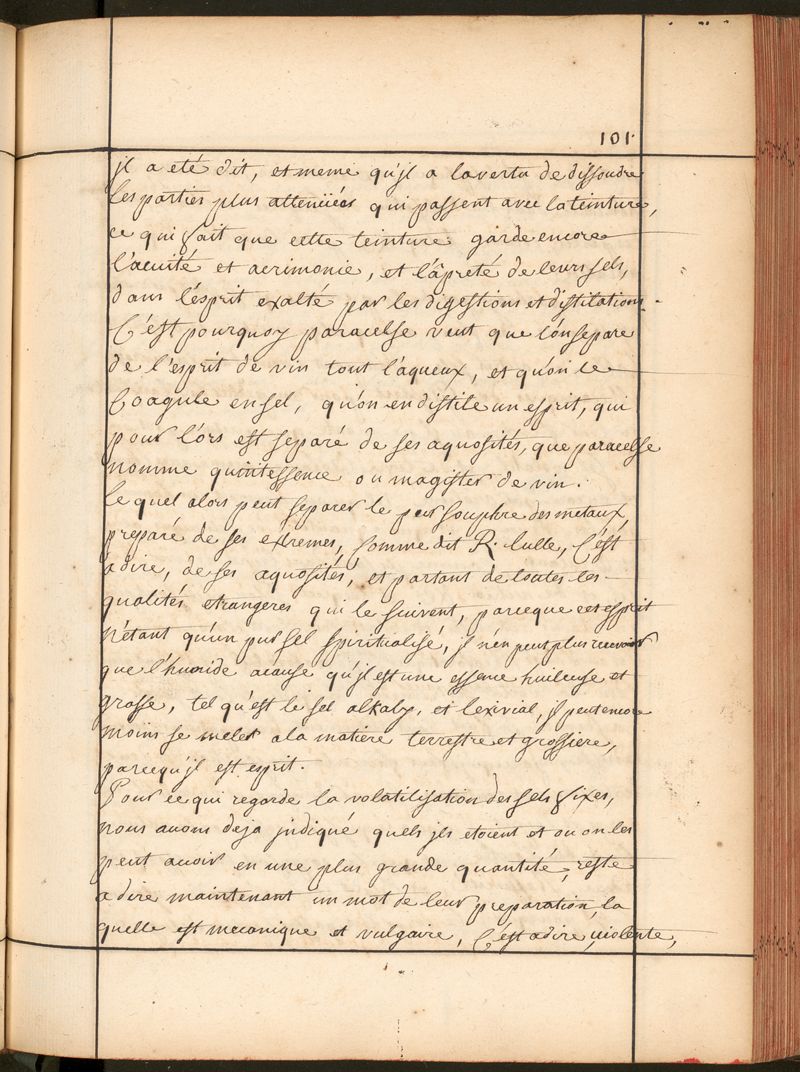 101.
jl a eté dit, et meme qu'jl a la vertu de dissoudre
les parties plus attenüées qui passent avec la teinture,
ce qui fait que cette teinture garde encore
l'acuité et acrimonie, et l'âpreté de leurs sels,
dans l'esprit exalté par les digestions et distilations.
C'est pourquoy paracelse veut que lón separe
de l'esprit de vin tout l'aqueux, et qu'on le
Coagule en sel, qu'on en distile un esprit, qui
pour l'ors est separé de ses aquosités, que paracelse
nomme quintessence ou magister de vin.
le quel alors peut separer le pur souphre des metaux,
preparé de ses extremes, comme dit R. lulle, C'est
a dire, de ses aquosités, et partant de toutes les
qualités etrangeres qui le suivent, parceque cet esprit
n'étant qu'un pur sel spiritialisé, jl n'en peut plus recevoir
que l'humide acause qu'jl est une essence huileuse et
grosse, tel qu'est le sel alkaly, et lexivial, jl peut encore
moins se meler a la matiere terrestre et grossiere,
parcequ'jl est esprit.
Pour ce qui regarde la volatilisation des sels fixes,
nous auons deja jndiqué quels jls etoient et ou on les
peut auoir en une plus grande quantité, reste
a dire maintenant un mot de leur preparation, la
quelle est mecanique et vulgaire, C'est a dire, uiolente,